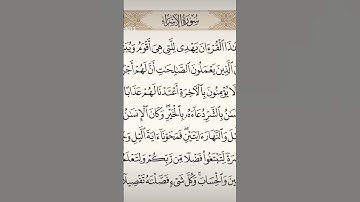 سُورَةُ الإِسْرَاءِ
هَٰذَا الْقُرْءَانَ يَهْدِى لِلَّتِى هِىَ أَقْوَمُ وَيُبَ
الَّذِينَ يَعْمَلُونَ الصَّٰلِحَٰتِ أَنَّ لَهُمْ أَجْرً
لَا يُؤْمِنُونَ بِالْءَاخِرَةِ أَعْتَدْنَا لَهُمْ عَذَابًا
نسَٰنُ بِالشَّرِّ دُعَاءَهُۥ بِالْخَيْرِ وَكَانَ الْإِنسَٰنُ
يْلَ وَالنَّهَارَ ءَايَتَيْنِ فَمَحَوْنَا ءَايَةَ الَّيْلِ وَ
رَةً لِّتَبْتَغُوا۟ فَضْلًا مِّن رَّبِّكُمْ وَلِتَعْلَمُ
نِينَ وَالْحِسَابَ وَكُلَّ شَىْءٍ فَصَّلْنَٰهُ تَفْصِيلًا